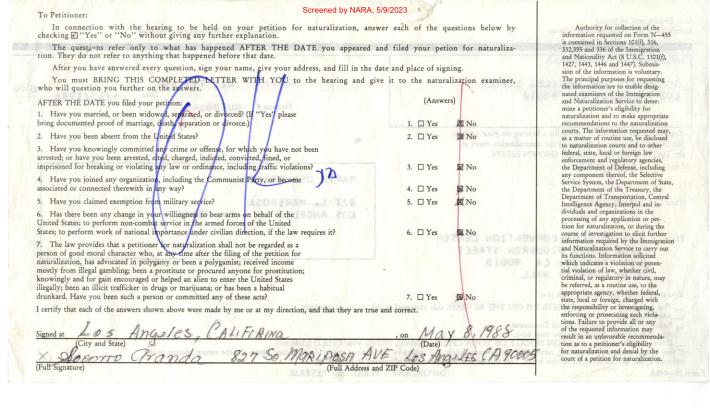 Screened by NARA, 5/9/2023
To Petitioner:
In connection with the hearing to be held on your petition for naturalization, answer each of the questions below by
checking ☑ "Yes" or "No" without giving any further explanation.
The questions refer only to what has happened AFTER THE DATE you appeared and filed your petition for naturaliza-
tion. They do not refer to anything that happened before that date.
After you have answered every question, sign your name, give your address, and fill in the date and place of signing.
You must BRING THIS COMPLETED LETTER WITH YOU to the hearing and give it to the naturalization examiner,
who will question you further on the answers.
AFTER THE DATE you filed your petition:
(Answers)
1. Have you married, or been widowed, separated, or divorced? (If "Yes" please
bring documented proof of marriage, death, separation or divorce.)
1. ☐ Yes ☒ No
2. Have you been absent from the United States?
2. ☐ Yes ☒ No
3. Have you knowingly committed any crime or offense, for which you have not been
arrested; or have you been arrested, cited, charged, indicted, convicted, fined, or
imprisoned for breaking or violating any law or ordinance, including traffic violations?
3. ☐ Yes ☒ No
4. Have you joined any organization, including the Communist Party, or become
associated or connected therewith in any way?
4. ☐ Yes ☒ No
5. Have you claimed exemption from military service?
5. ☐ Yes ☒ No
6. Has there been any change in your willingness to bear arms on behalf of the
United States; to perform non-combat service in the armed forces of the United
States; to perform work of national importance under civilian direction, if the law requires it?
6. ☐ Yes ☒ No
7. The law provides that a petitioner for naturalization shall not be regarded as a
person of good moral character who, at any time after the filing of the petition for
naturalization, has advocated in polygamy or been a polygamist; received income
mostly from illegal gambling; been a prostitute or procured anyone for prostitution;
knowingly and for gain encouraged or helped an alien to enter the United States
illegally; been an illicit trafficker in drugs or marijuana; or has been a habitual
drunkard. Have you been such a person or committed any of these acts?
7. ☐ Yes ☒ No
I certify that each of the answers shown above were made by me or at my direction, and that they are true and correct.
Signed at Los Angeles, CALIFIRINA, on May 8, 1988
(City and State) (Date)
X Socorro Granda 827 So MARIPOSA AVE Los Angeles CA 90005
(Full Signature) (Full Address and ZIP Code)
Authority for collection of the
information requested on Form N-455
is contained in Sections 101(f), 316,
332, 335 and 336 of the Immigration
and Nationality Act (8 U.S.C. 1101(f),
1427, 1443, 1446 and 1447). Submis-
sion of the information is voluntary.
The principal purposes for requesting
the information are to enable desig-
nated examiners of the Immigration
and Naturalization Service to deter-
mine a petitioner's eligibility for
naturalization and to make appropriate
recommendations to the naturalization
courts. The information requested may,
as a matter of routine use, be disclosed
to naturalization courts and to other
federal, state, local or foreign law
enforcement and regulatory agencies,
the Department of Defense, including
any component thereof, the Selective
Service System, the Department of State,
the Department of the Treasury, the
Department of Transportation, Central
Intelligence Agency, Interpol and in-
dividuals and organizations in the
processing of any application or pet-
ition for naturalization, or during the
course of investigation to elicit further
information required by the Immigration
and Naturalization Service to carry out
its functions. Information solicited
which indicates a violation or poten-
tial violation of law, whether civil,
criminal, or regulatory in nature, may
be referred, as a routine use, to the
appropriate agency, whether federal,
state, local or foreign, charged with
the responsibility of investigating,
enforcing or prosecuting such viola-
tions. Failure to provide all or any
of the requested information may
result in an unfavorable recommenda-
tion as to a petitioner's eligibility
for naturalization and denial by the
court of a petition for naturalization.